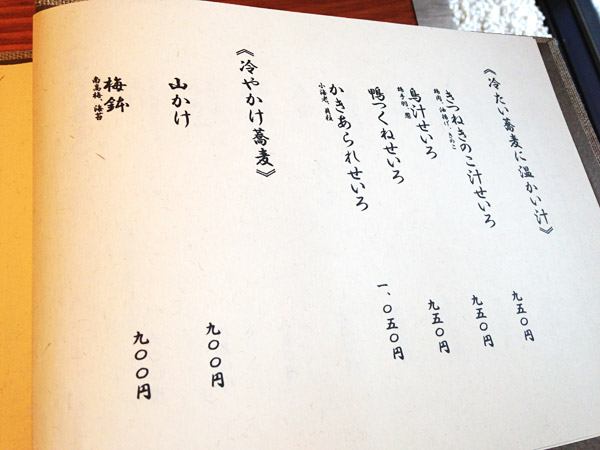 《冷たい蕎麦に温かい汁》
きつねきのこ汁せいろ
油揚げ、きのこ
九五〇円
鳥汁せいろ
九五〇円
鴨つくねせいろ
九五〇円
かきあられせいろ
小海老、貝柱
一、〇五〇円
《冷やかけ蕎麦》
山かけ
九〇〇円
梅鉢
南高梅、海苔
九〇〇円